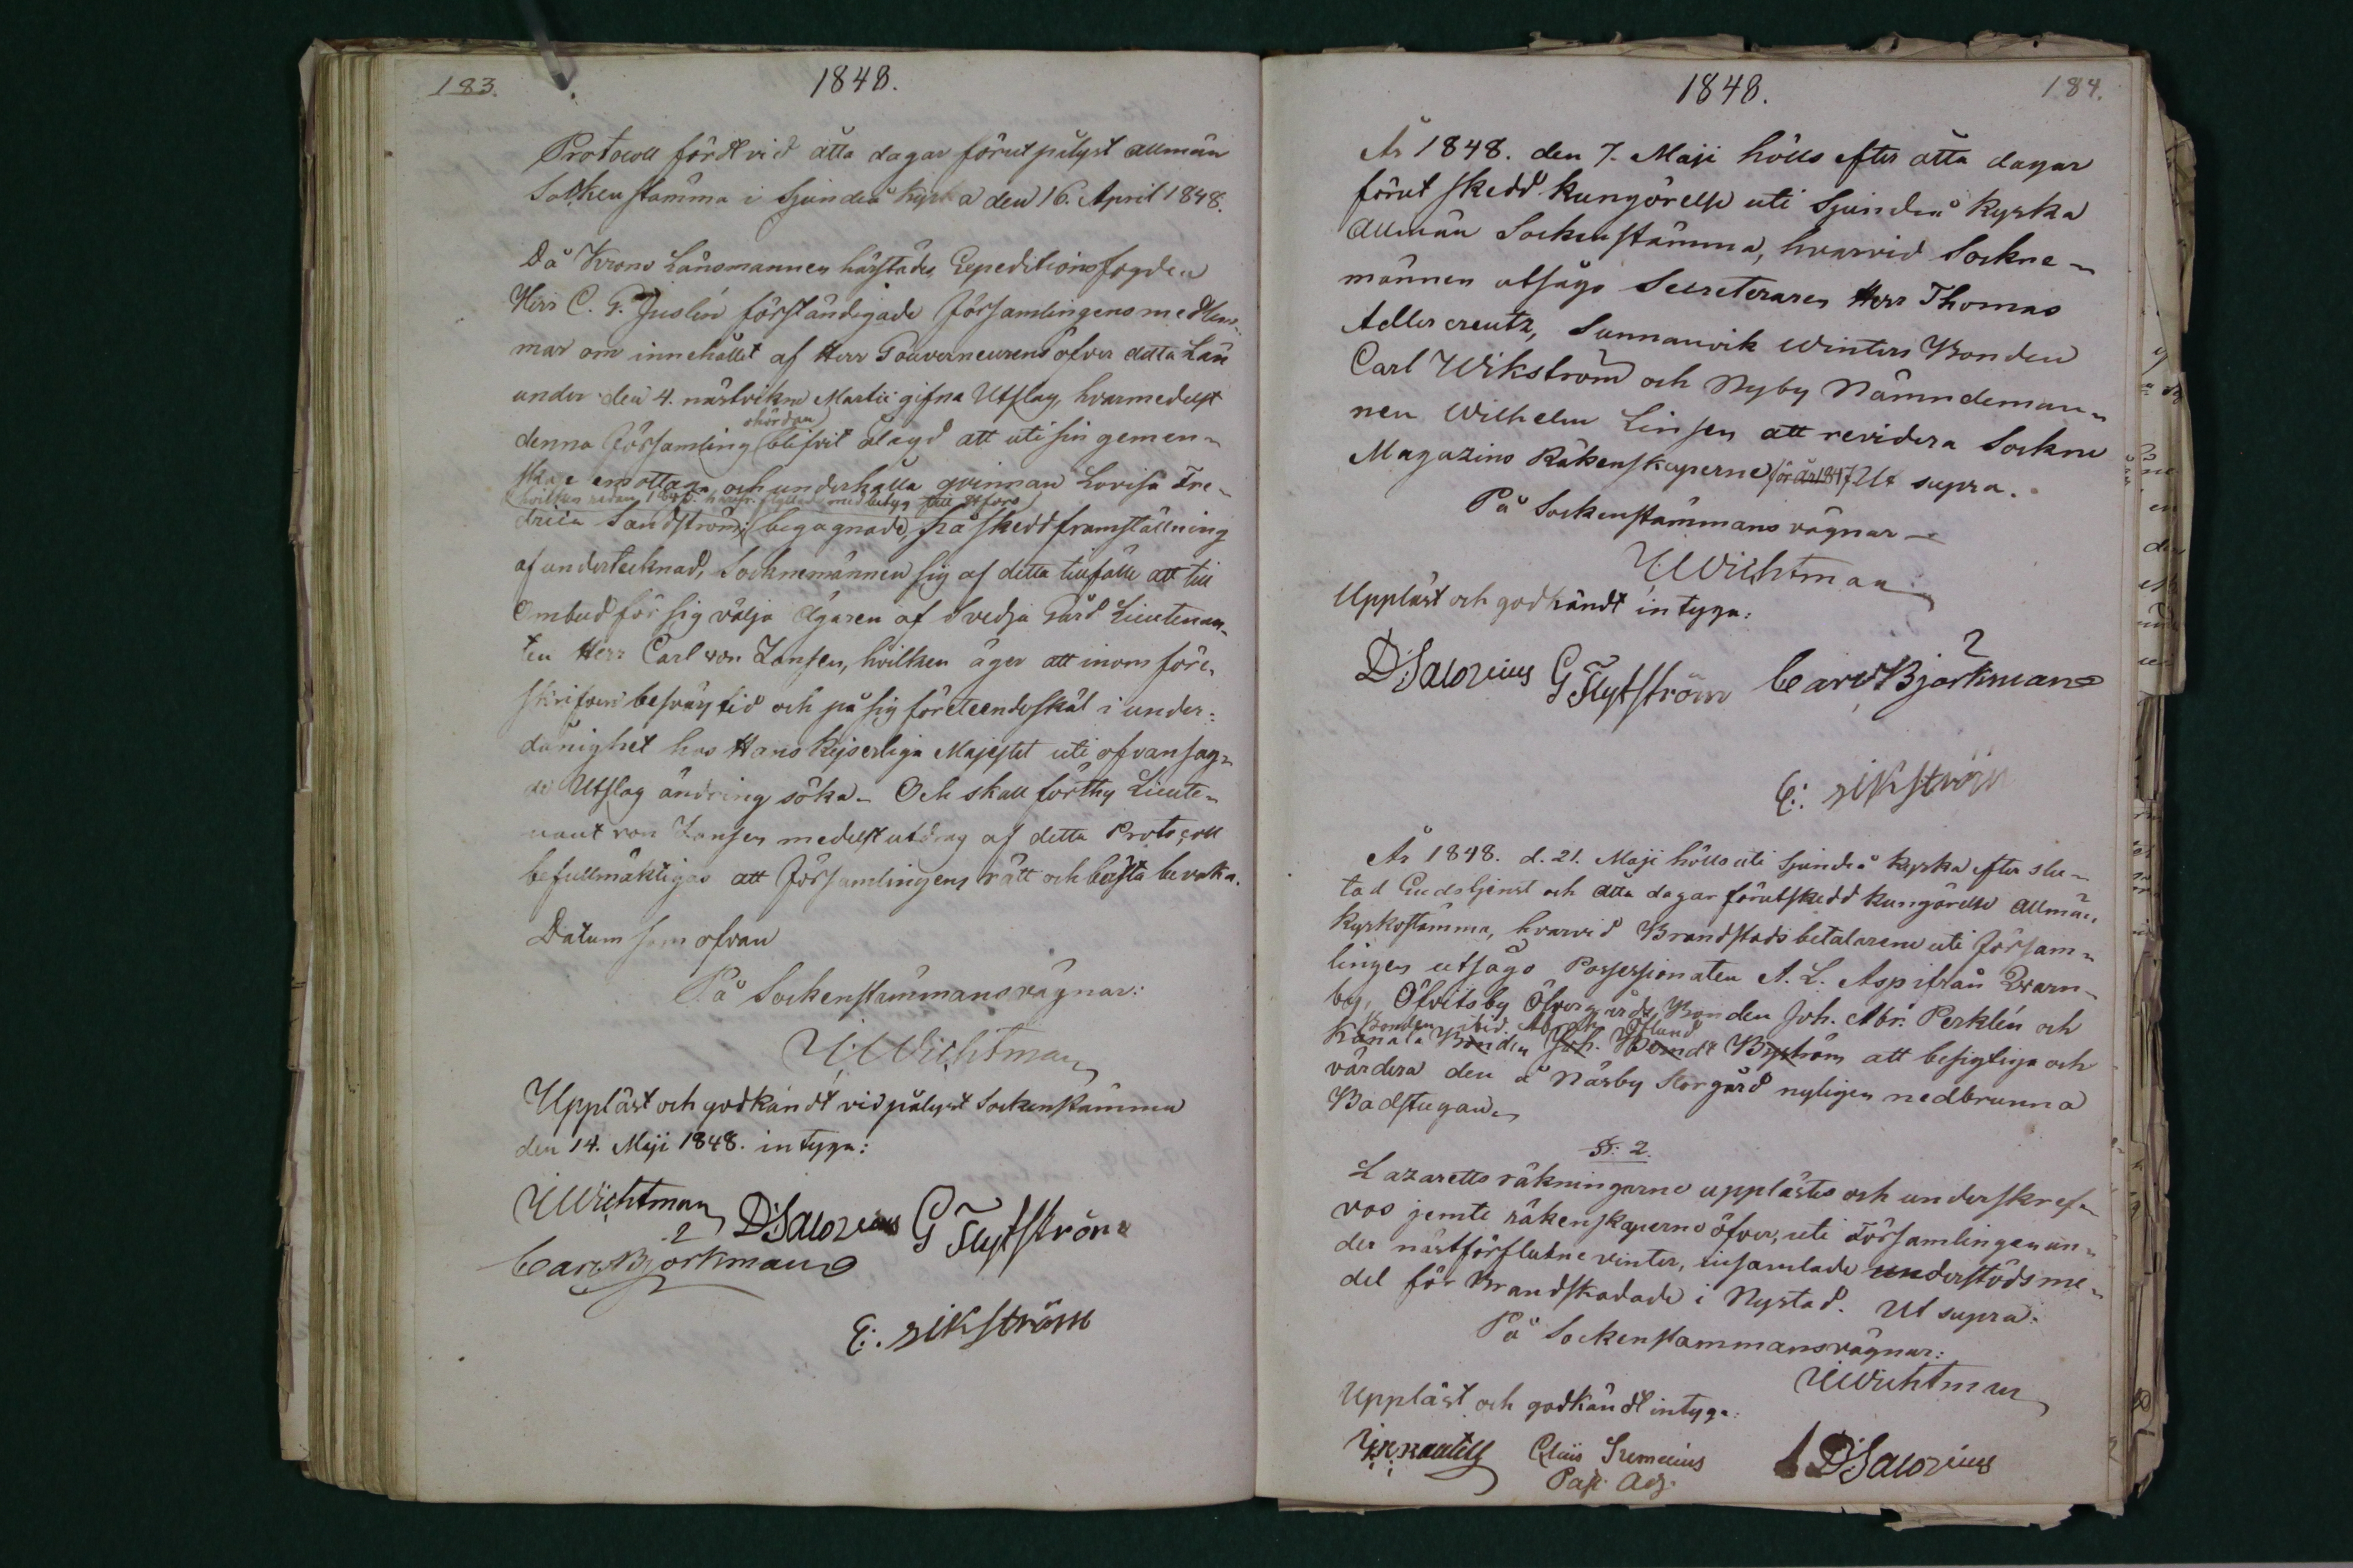 183.
1848.
Protocoll fördt vid åtta dagar förut pålyst allmän
Sockenstämma i Sjundeå kyrka den 16. April 1848.
Då Krono Länsmannen härstädes, Expeditionsfogden
Herr C. G. Juslin förständigade Församlingens medlem-
mar om innehållet af Herr Gouverneurens öfver detta Län
under den 4. nästvikne Martii gifna Utslag, hvarmedelst
ohördan
denna Församling blifvit ålagd att uti sin gemen-
skap emottaga och underhålla qvinnan Lovisa Fre-
hvilken redan
med betyg
drica Sandström; begagnade, på skedd framställning
af undertecknad, Socknemännen sig af detta tillfälle att till
Ombud för sig välja ägaren af Svedja Gård Lieutenan-
ten Herr Carl von Zansen, hvilken äger att inom före-
skrifven besvärstid och på sig företeende skäl i under-
dånighet hos Hans Kejserliga Majestet uti ofvansag-
de Utslag ändring söka. Och skall förthy Lieute-
nant von Zansen medelst utdrag af detta Protocoll
befullmäktigas att Församlingens rätt och bästa bevaka.
Datum som ofvan
På Sockenstämmans vägnar:
Wichtman
Uppläst och godkändt vid pålyst Sockenstämma
den 14. Maji 1848. intyga:
Wichtman D Salovius G Flytström
Carl Björkman
E: Wikström
1848.
184.
År 1848. den 7. Maji hölls efter åtta dagar
förut skedd kungörelse uti Sjundeå Kyrka
allmän Sockenstämma, hvarvid Sockne-
männen utsågo Secreteraren Herr Thomas
Adlercreutz, Sunnanvik Winters Bonden
Carl Wikström och Nyby Nämndeman-
nen Wilhelm Linsen att revidera Sockne
Magazins Räkenskaperne för år 1847 Ut supra.
På Sockenstämmans vägnar
Wichtman
Uppläst och godkändt intyga:
D Salovius G Flytström Carl Björkman
E: Wikström
År 1848. d. 21. Maji hölls uti Sjundeå Kyrka efter slu-
tad Gudstjenst och åtta dagar förutskedd kungörelse allmän
Kyrkostämma, hvarvid Brandstodsbetalarene uti Försam-
lingen utsågo Possessionaten A. L. Asp ifrån Qvarn-
by, Öfvitsby Öfvergårds Bonden Joh. Abr. Perklén och
Bonden ibid. Öflund
Kunala Bonden Joh. Byström att besigtiga och
värdera den å Näsby Storgård nyligen nedbrunna
Badstugan
§: 2.
Lazaretts räkningarne upplästes och underskref-
vos jemte räkenskaperne öfver, uti Församlingen un-
der nästförflutne vinter, insamlade understödsme-
del för Brandskadade i Nystad. Ut supra.
På Sockenstämmans vägnar:
Wichtman
Uppläst och godkändt intyga:
D Salovius
Past. Adj.